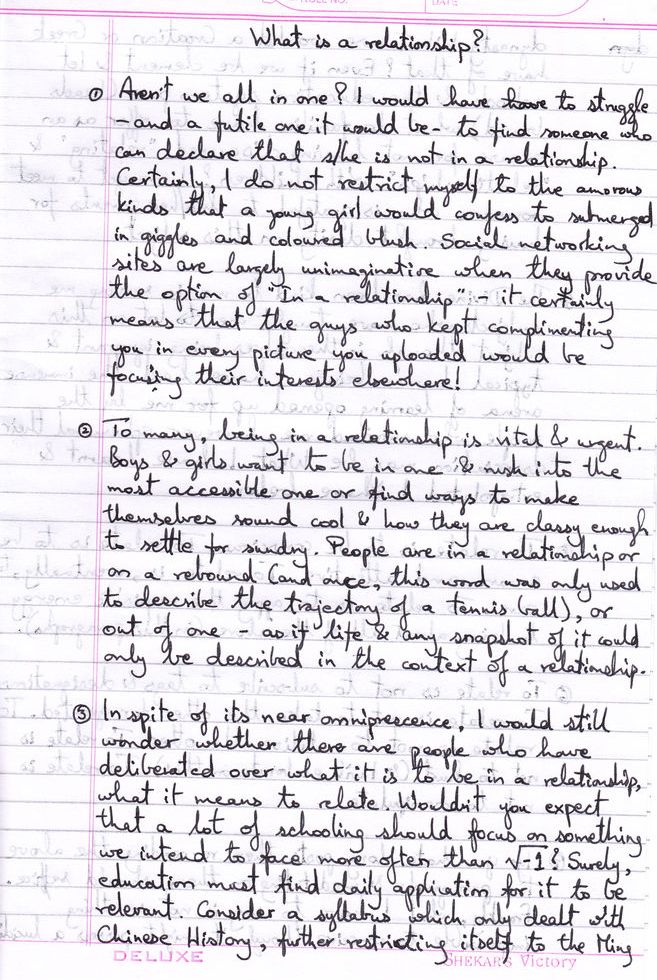 What is a relationship?
① Aren't we all in one? I would have have to struggle
- and a futile one it would be - to find someone who
can declare that s/he is not in a relationship.
Certainly, I do not restrict myself to the amorous
kinds that a young girl would confess to submerged
in giggles and coloured blush. Social networking
sites are largely unimaginative when they provide
the option of "In a relationship" - it certainly
means that the guys who kept complimenting
you in every picture you uploaded would be
focusing their interests elsewhere!
② To many, being in a relationship is vital & urgent.
Boys & girls want to be in one & rush into the
most accessible one or find ways to make
themselves sound cool & how they are classy enough
to settle for sundry. People are in a relationship or
on a rebound (and once, this word was only used
to describe the trajectory of a tennis ball), or
out of one - as if life & any snapshot of it could
only be described in the context of a relationship.
③ In spite of its near omniprescence, I would still
wonder whether there are people who have
deliberated over what it is to be in a relationship,
what it means to relate. Wouldn't you expect
that a lot of schooling should focus on something
we intend to face more often than √-1? Surely,
education must find daily application for it to be
relevant. Consider a syllabus which only dealt with
Chinese History, further restricting itself to the Ming
DELUXE SHEKAR'S Victory